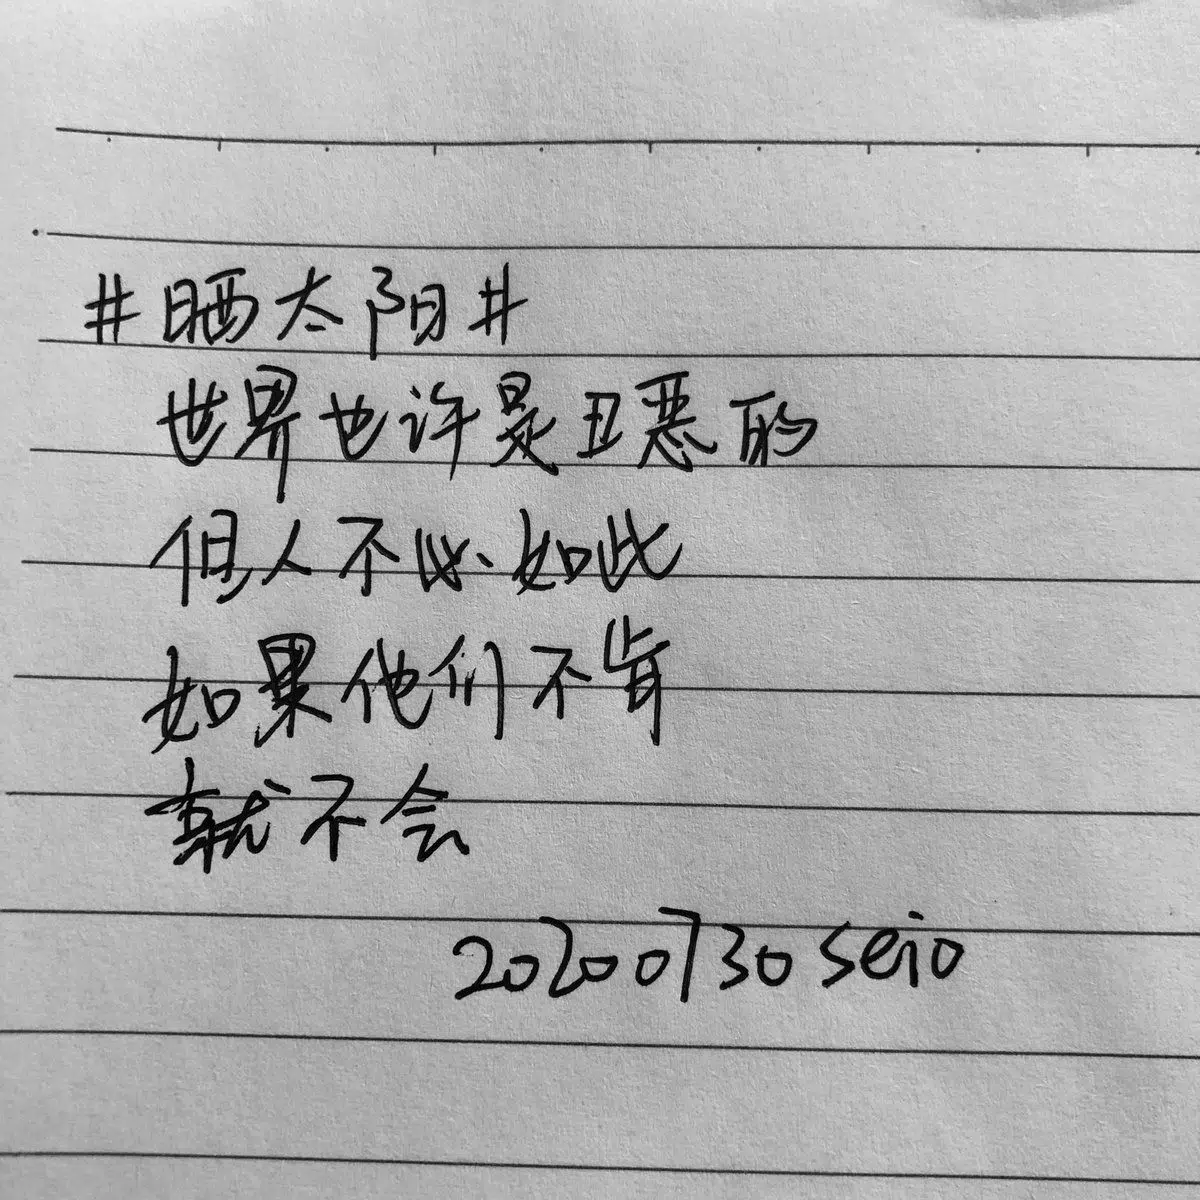 #晒太阳#
世界也许是丑恶的
但人不必如此
如果他们不肯
就不会
20200730 seio